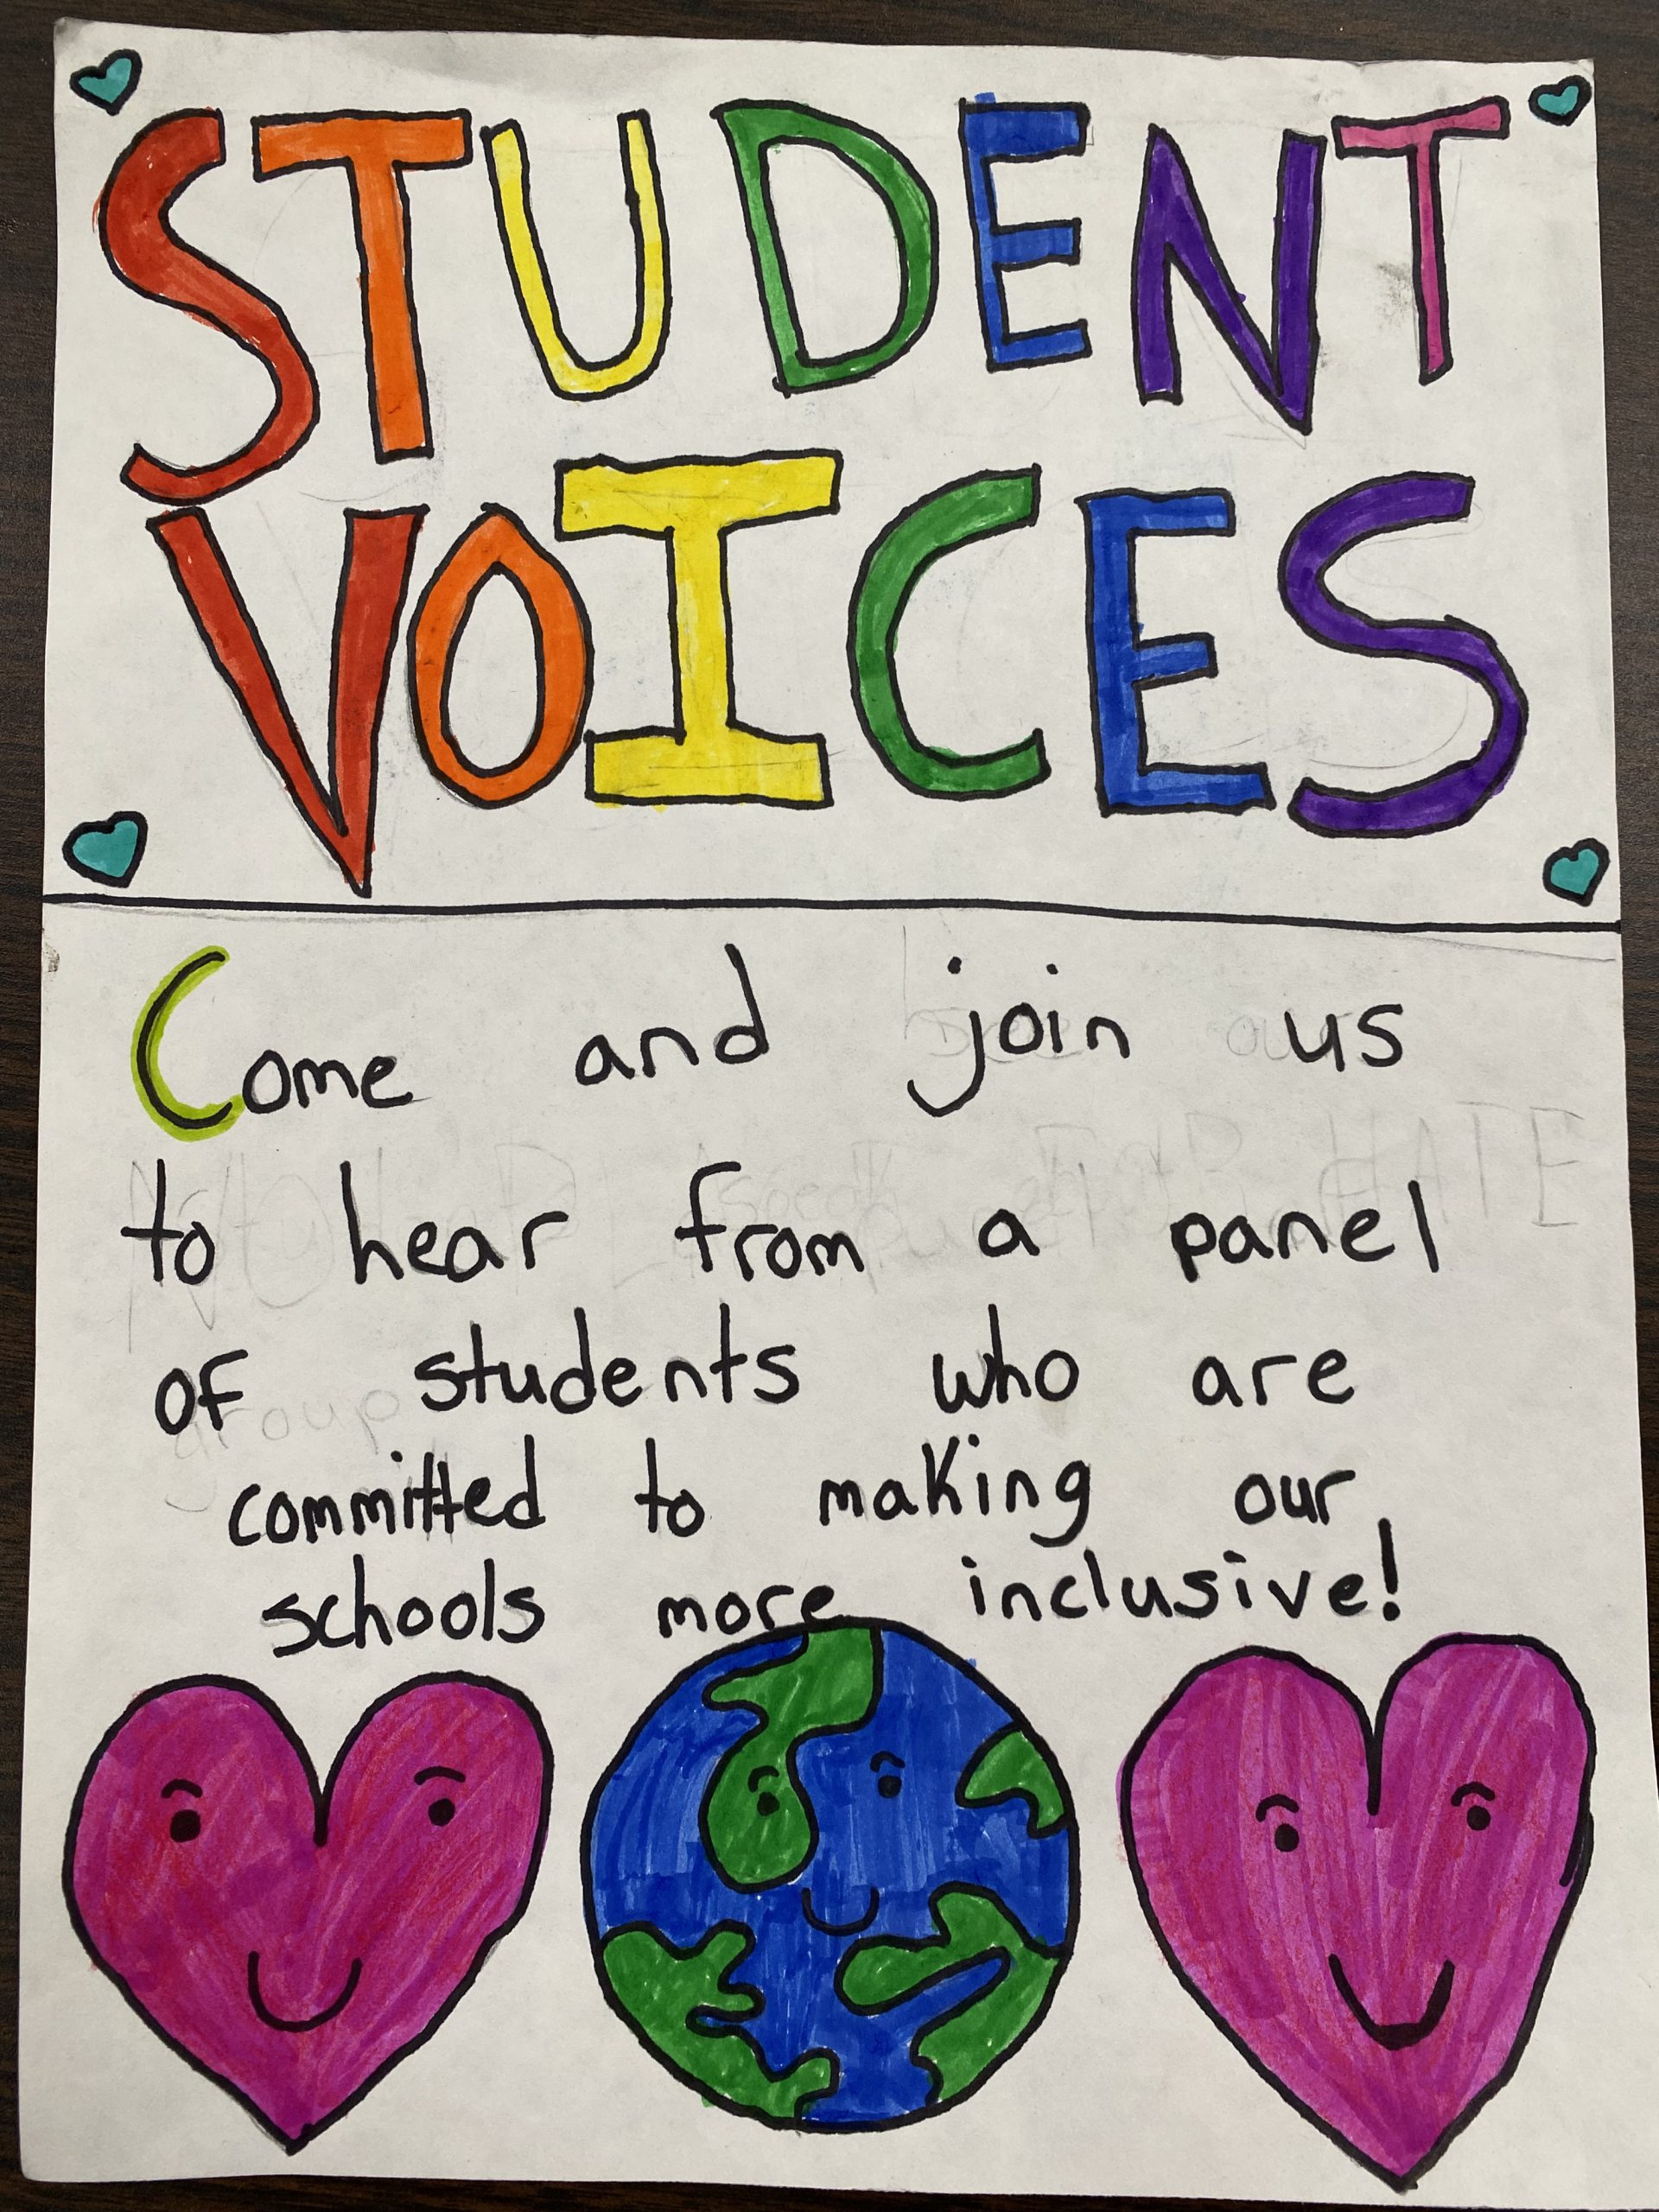 STUDENT
VOICES
Come and join us
to hear from a panel
of students who are
committed to making our
schools more inclusive!